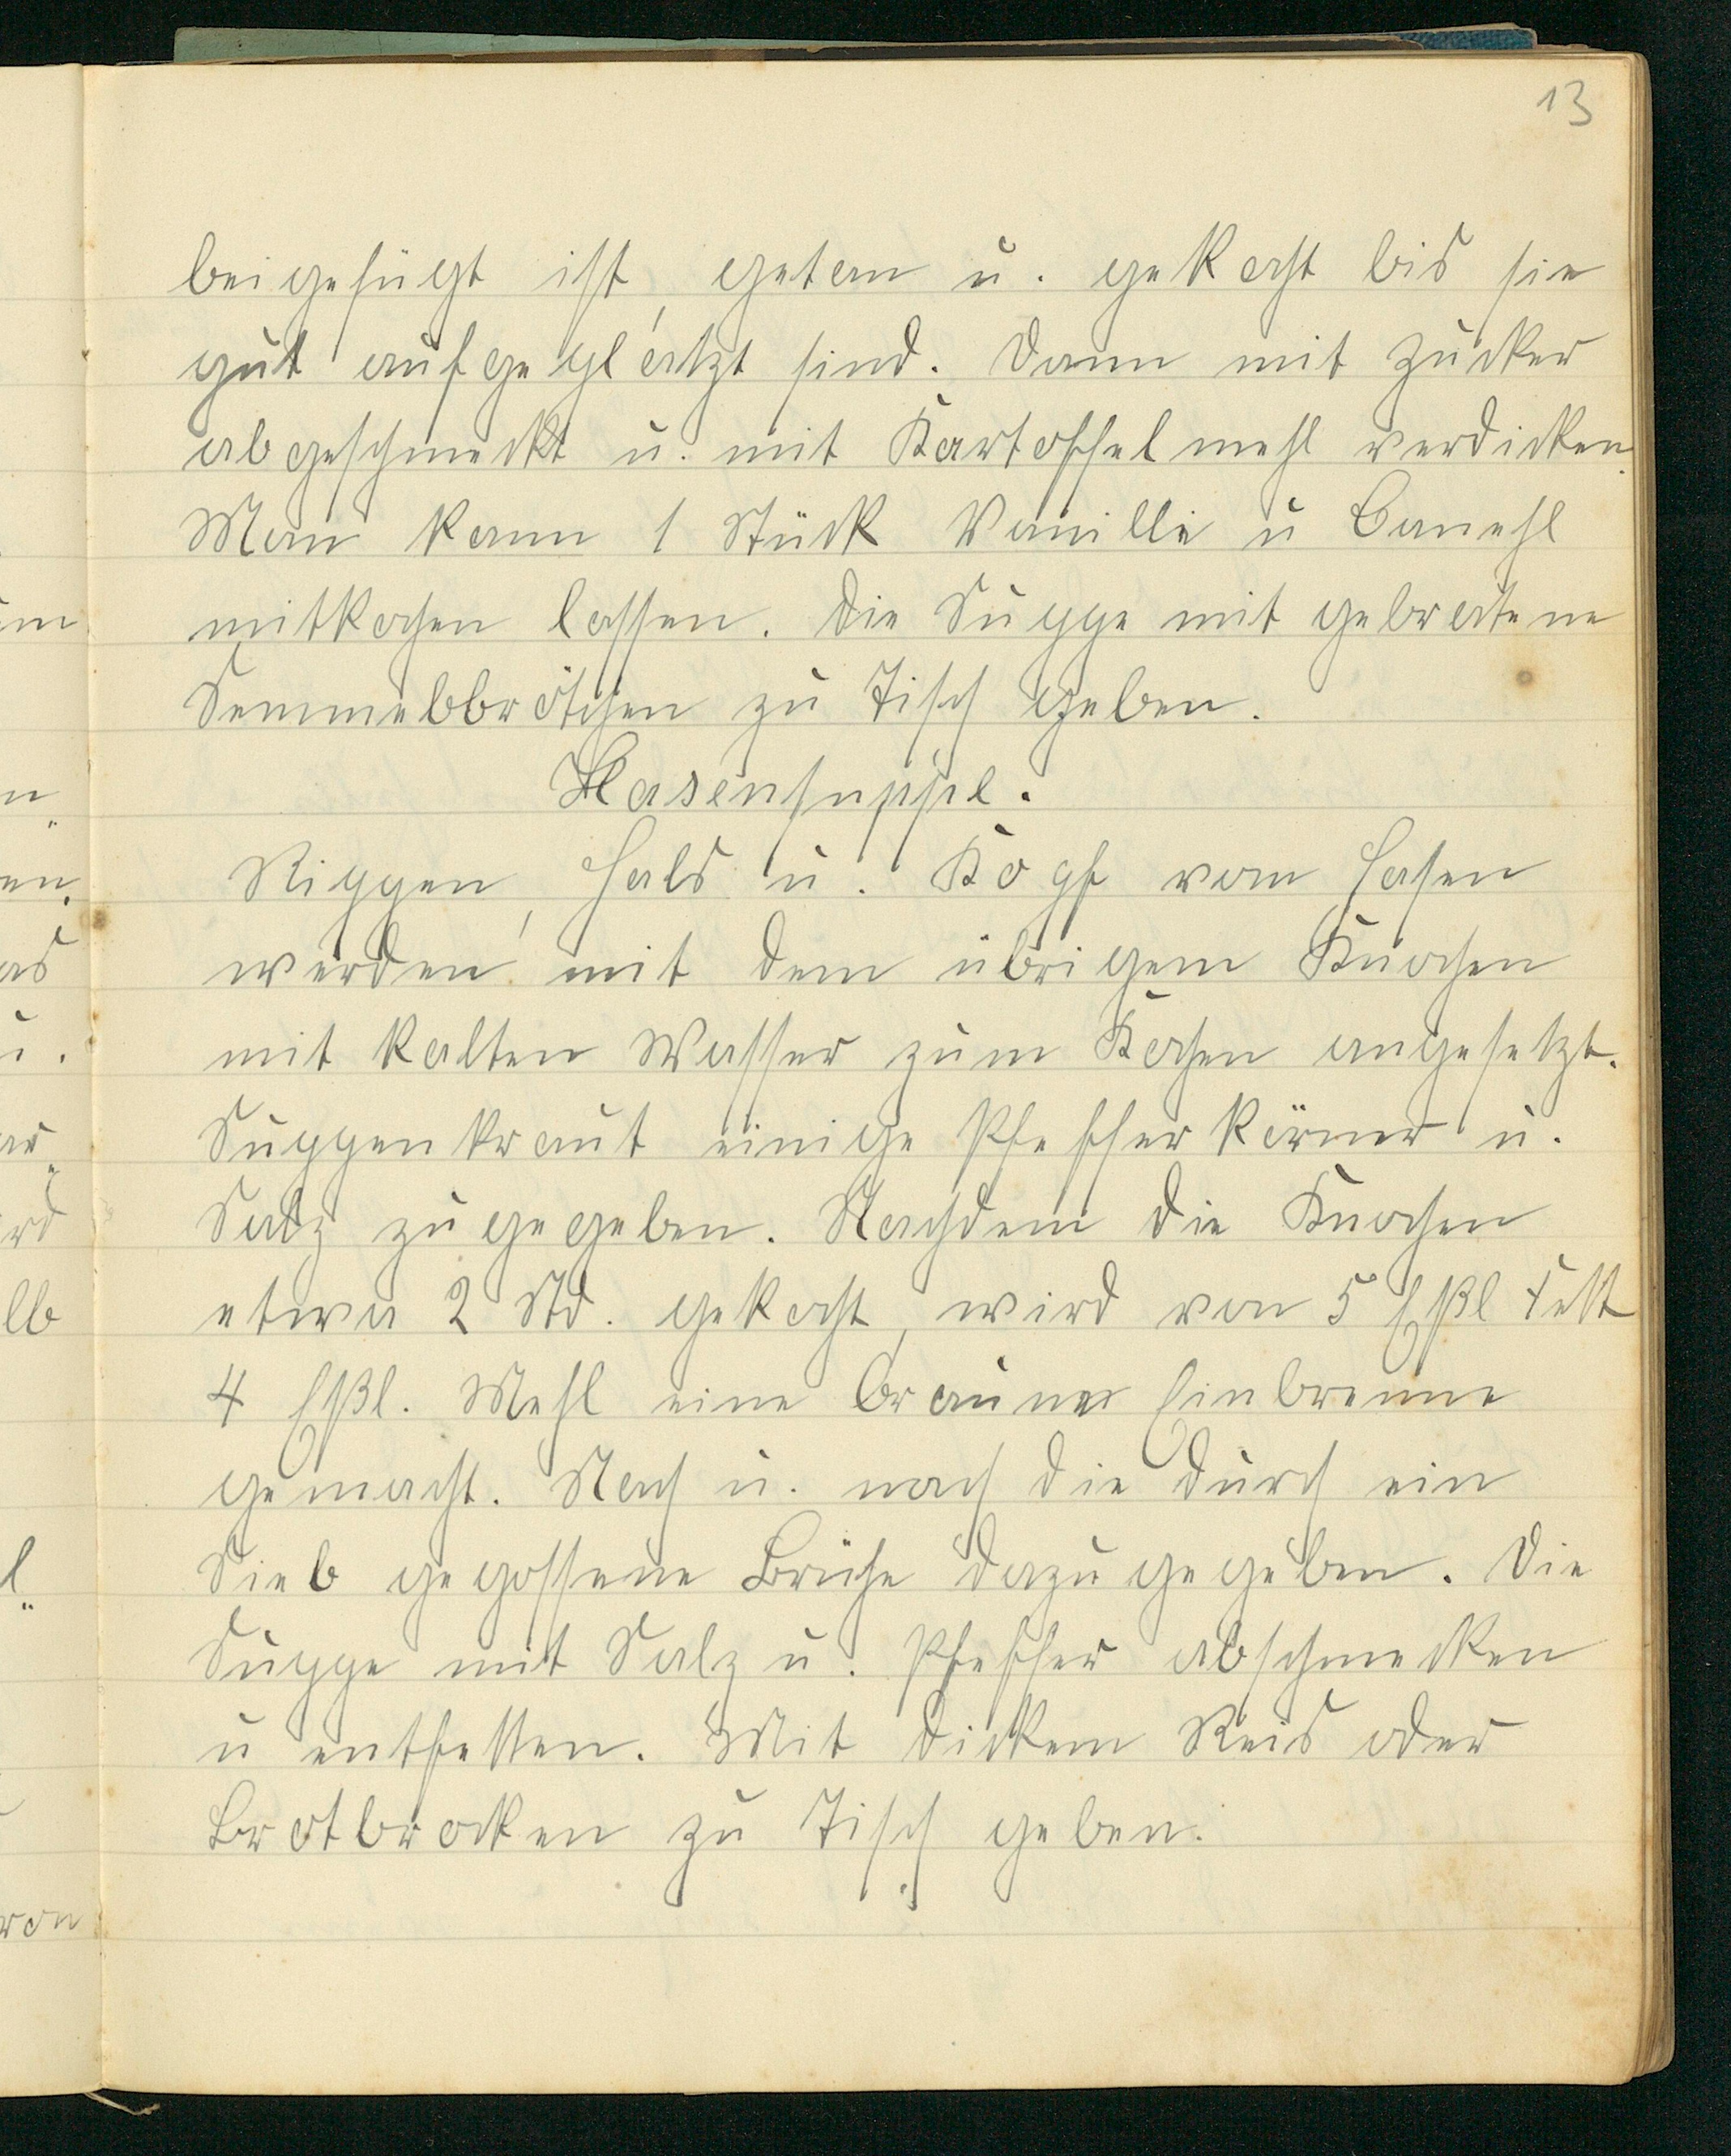 13
beigefügt ist, getan u. gekocht bis sie
gut aufgeplatzt sind. Dann mit Zucker
abgeschmeckt u. mit Kartoffelmehl verdicken.
Man kann 1 Stück Vanille u Canehl
mitkochen lassen. Die Suppe mit gebratene
Semmelbrötchen zu Tisch geben.
Hasensuppe.
Rippen, Hals u. Kopf vom Hasen
werden mit dem übrigem Knochen
mit kalten Wasser zum Kochen angesetzt.
Suppenkraut einige Pfefferkörner u.
Salz zugegeben. Nachdem die Knochen
etwa 2 Std. gekocht, wird von 5 Eßl Fett
4 Eßl. Mehl eine braune Einbrenne
gemacht. Nach u. nach die durch ein
Sieb gegossene Brühe dazugegeben. Die
Suppe mit Salz u. Pfeffer abschmecken
u entfetten. Mit dickem Reis oder
Brotbrocken zu Tisch geben.